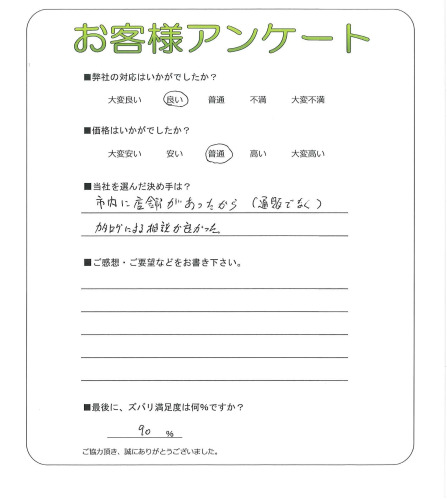 お客様アンケート
■弊社の対応はいかがでしたか?
大変良い 良い 普通 不満 大変不満
■価格はいかがでしたか?
大変安い 安い 普通 高い 大変高い
■当社を選んだ決め手は?
市内に店舗があったから(通販でなく)
カタログによる相談が良かった。
■ご感想・ご要望などをお書き下さい。
■最後に、ズバリ満足度は何%ですか?
90 %
ご協力頂き、誠にありがとうございました。